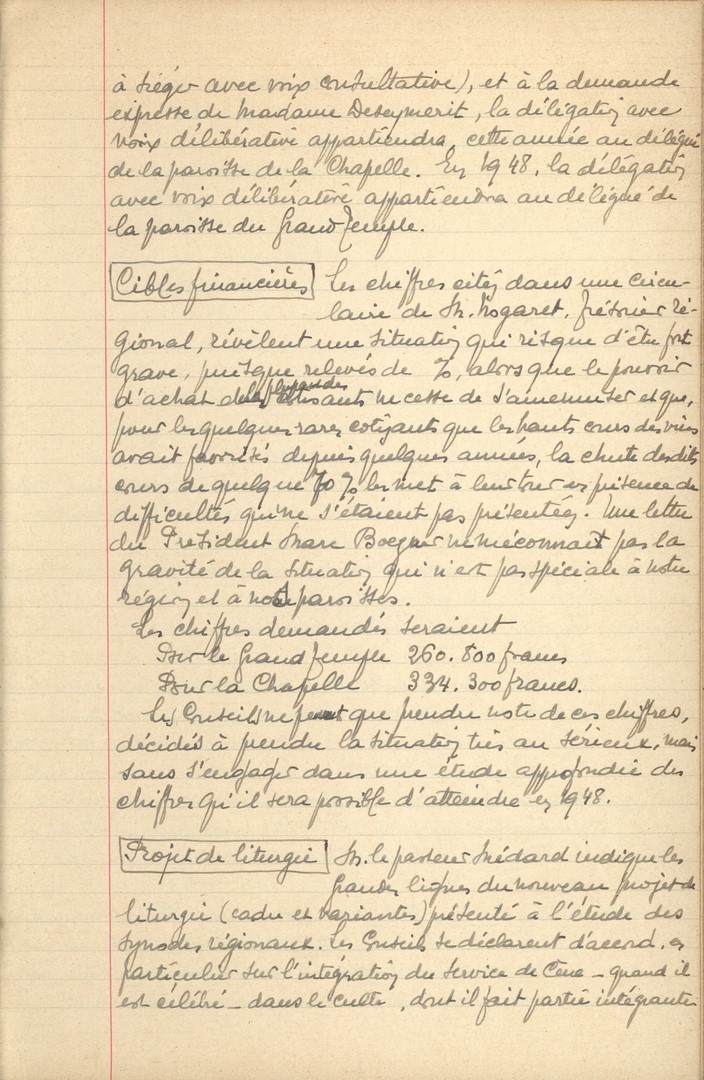 à siéger avec voix consultative), et à la demande
expresse de Madame Deseymerit, la délégation avec
voix délibérative appartiendra, cette année au délégué
de la paroisse de la Chapelle. En 1948, la délégation
avec voix délibérative appartiendra au délégué de
la paroisse du Grand Temple.
Cibles financières Les chiffres cités dans une circu-
laire de M. Nogaret, trésorier ré-
gional, révèlent une situation qui risque d'être fort
grave, puisque relevés de %, alors que le pouvoir
d'achat de la plupart des cotisants ne cesse de s'amenuiser et que,
pour les quelques rares cotisants que les hauts cours des vins
avait favorisés depuis quelques années, la chute desdits
cours de quelque 70 % les met à leur tour en présence de
difficultés qui ne s'étaient pas présentées. Une lettre
du Président Marc Boegner ne méconnait pas la
gravité de la situation qui n'est pas spéciale à notre
région et à nos paroisses.
Les chiffres demandés seraient
Pour le Grand Temple 260.800 francs
Pour la Chapelle 334.300 francs.
Les Conseils ne peuvent que prendre note de ces chiffres,
décidés à prendre la situation très au sérieux, mais
sans s'engager dans une étude approfondie des
chiffres qu'il sera possible d'atteindre en 1948.
Projet de liturgie M. le pasteur Médard indique les
grandes lignes du nouveau projet de
liturgie (cadre et variantes) présenté à l'étude des
synodes régionaux. Les Conseils se déclarent d'accord, en
particulier sur l'intégration du service de Cène – quand il
est célébré – dans le culte, dont il fait partie intégrante